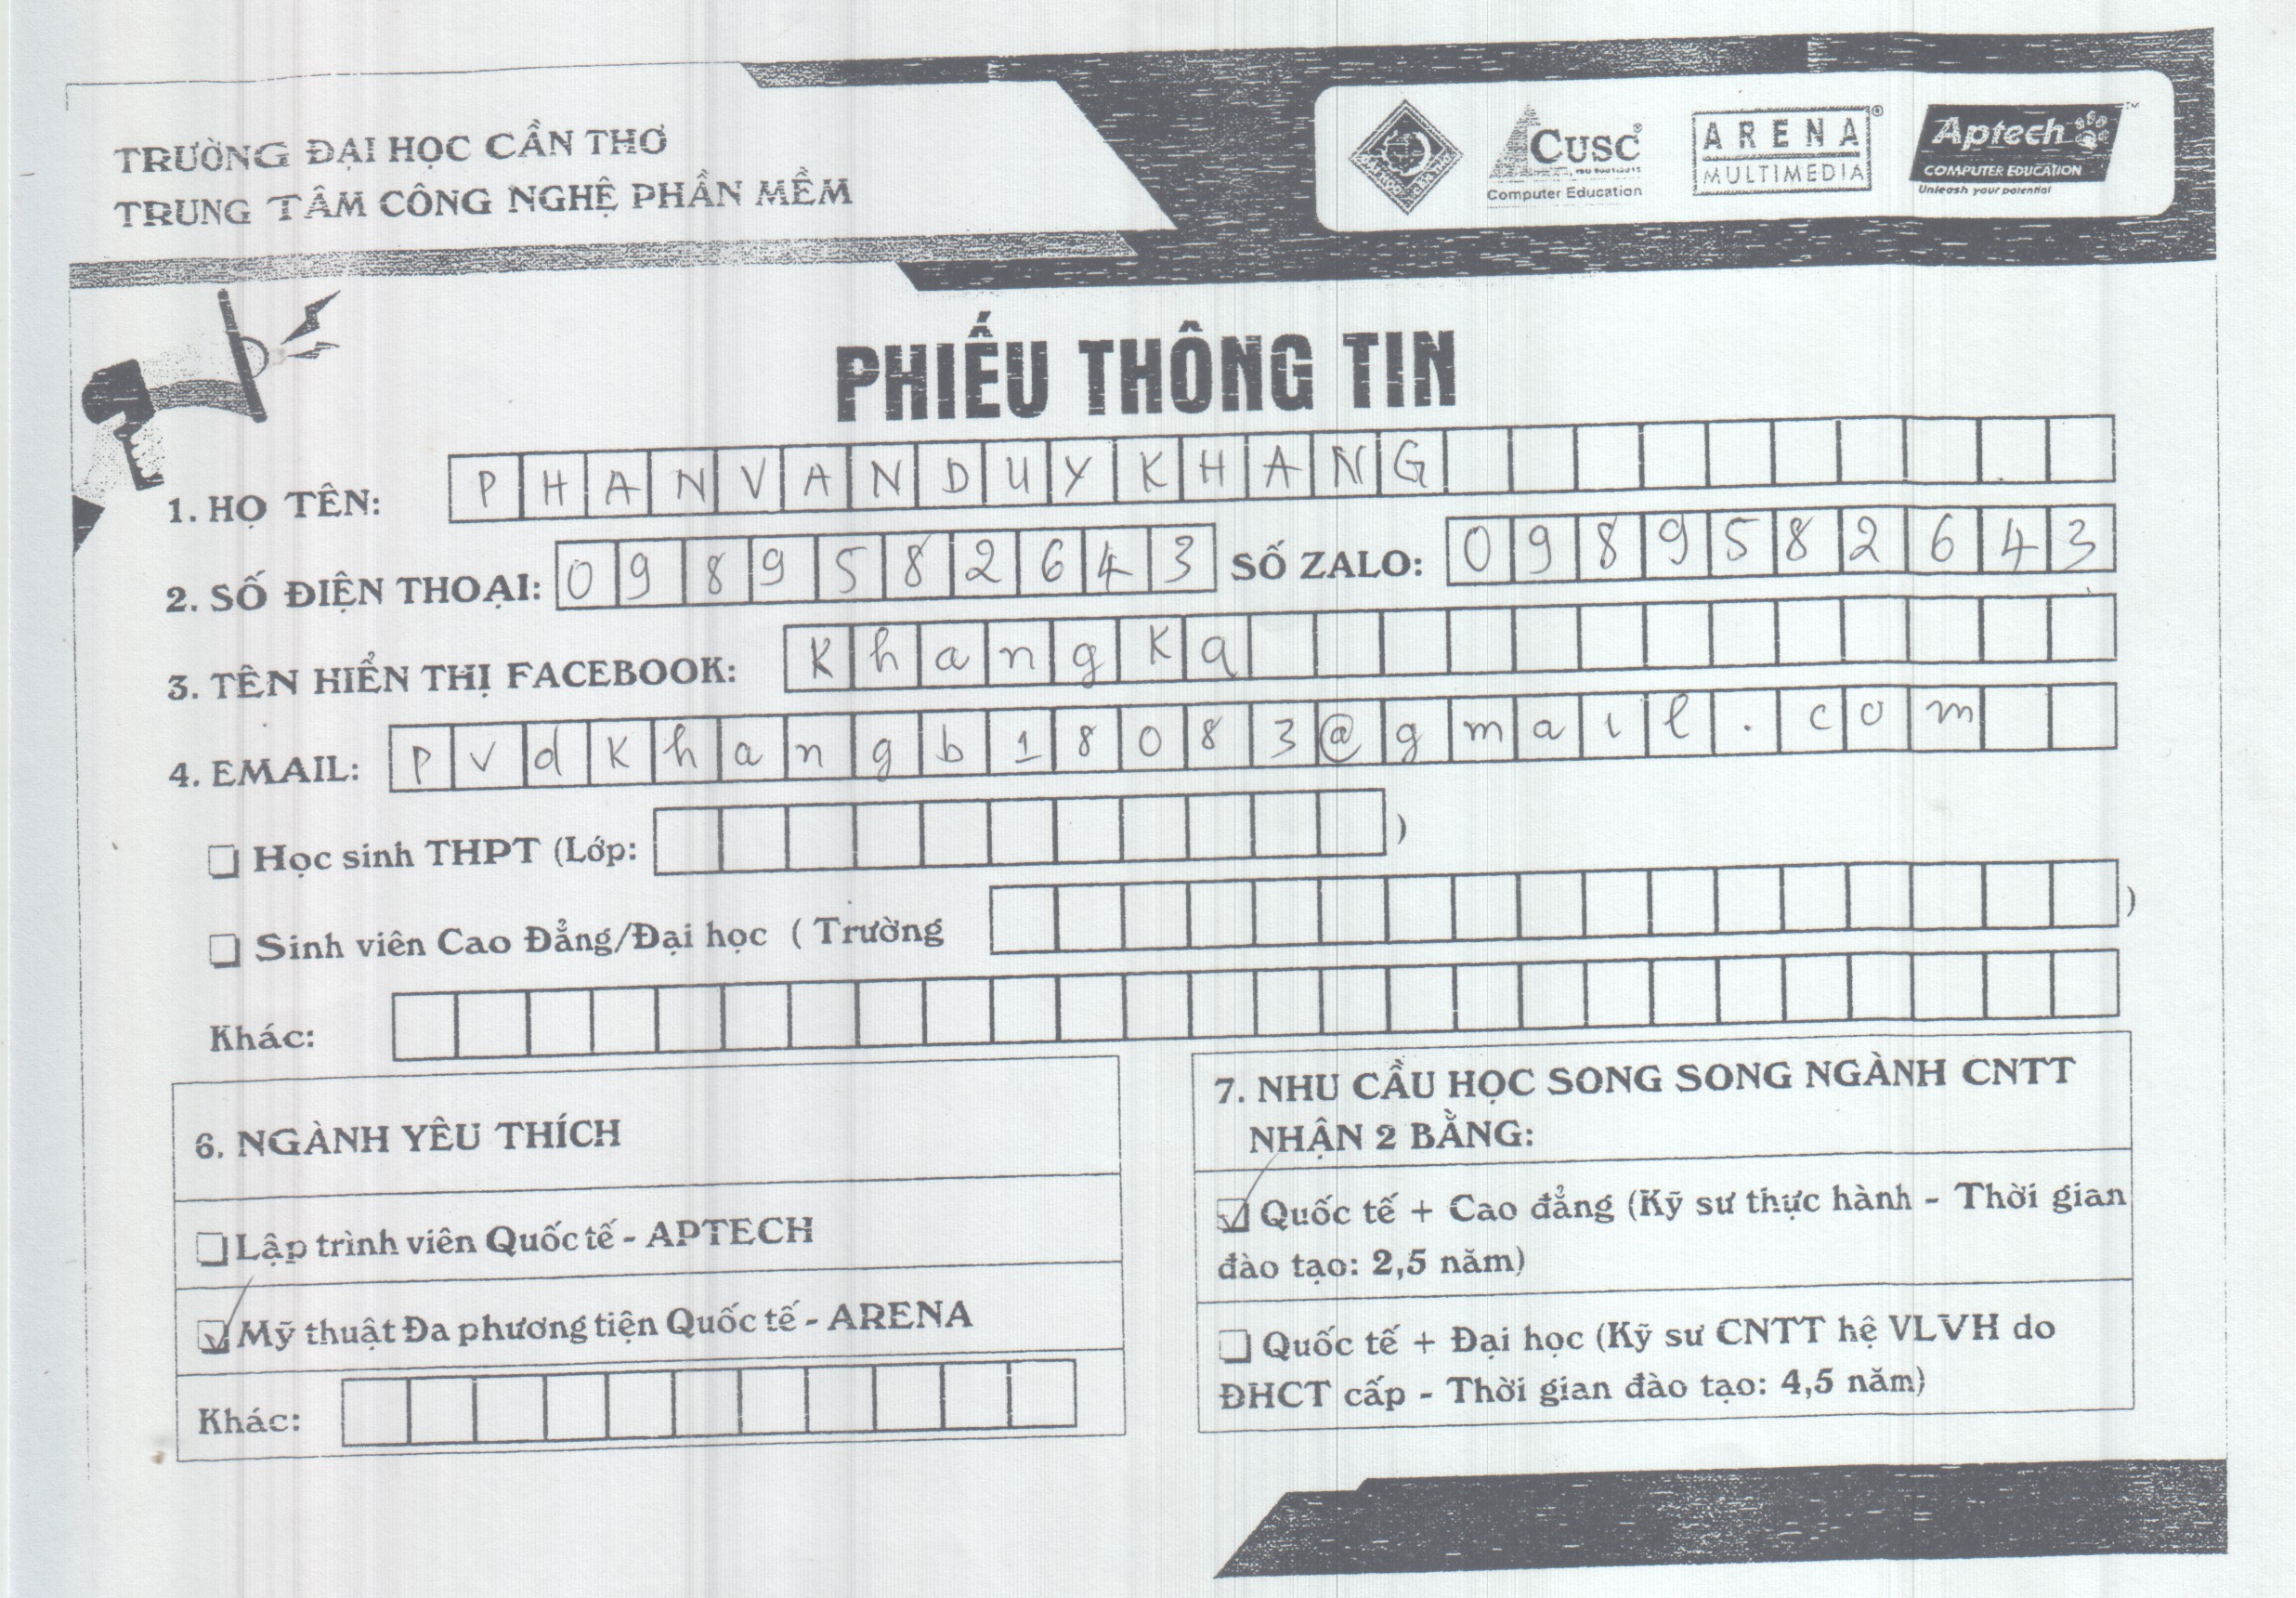 TRƯỜNG ĐẠI HỌC CẦN THƠ
TRUNG TÂM CÔNG NGHỆ PHẦN MỀM
CUSC®
Computer Education
ARENA®
MULTIMEDIA
Aptech™
COMPUTER EDUCATION
Unleash your potential
PHIẾU THÔNG TIN
1. HỌ TÊN: PHANVANDUYKHANG
2. SỐ ĐIỆN THOẠI: 0989582643 SỐ ZALO: 0989582643
3. TÊN HIỂN THỊ FACEBOOK: KhangKa
4. EMAIL: pvdKhangb18083@gmail.com
Học sinh THPT (Lớp: )
Sinh viên Cao Đẳng/Đại học ( Trường )
Khác:
6. NGÀNH YÊU THÍCH
Lập trình viên Quốc tế - APTECH
Mỹ thuật Đa phương tiện Quốc tế - ARENA
Khác:
7. NHU CẦU HỌC SONG SONG NGÀNH CNTT
NHẬN 2 BẰNG:
Quốc tế + Cao đẳng (Kỹ sư thực hành - Thời gian
đào tạo: 2,5 năm)
Quốc tế + Đại học (Kỹ sư CNTT hệ VLVH do
ĐHCT cấp - Thời gian đào tạo: 4,5 năm)